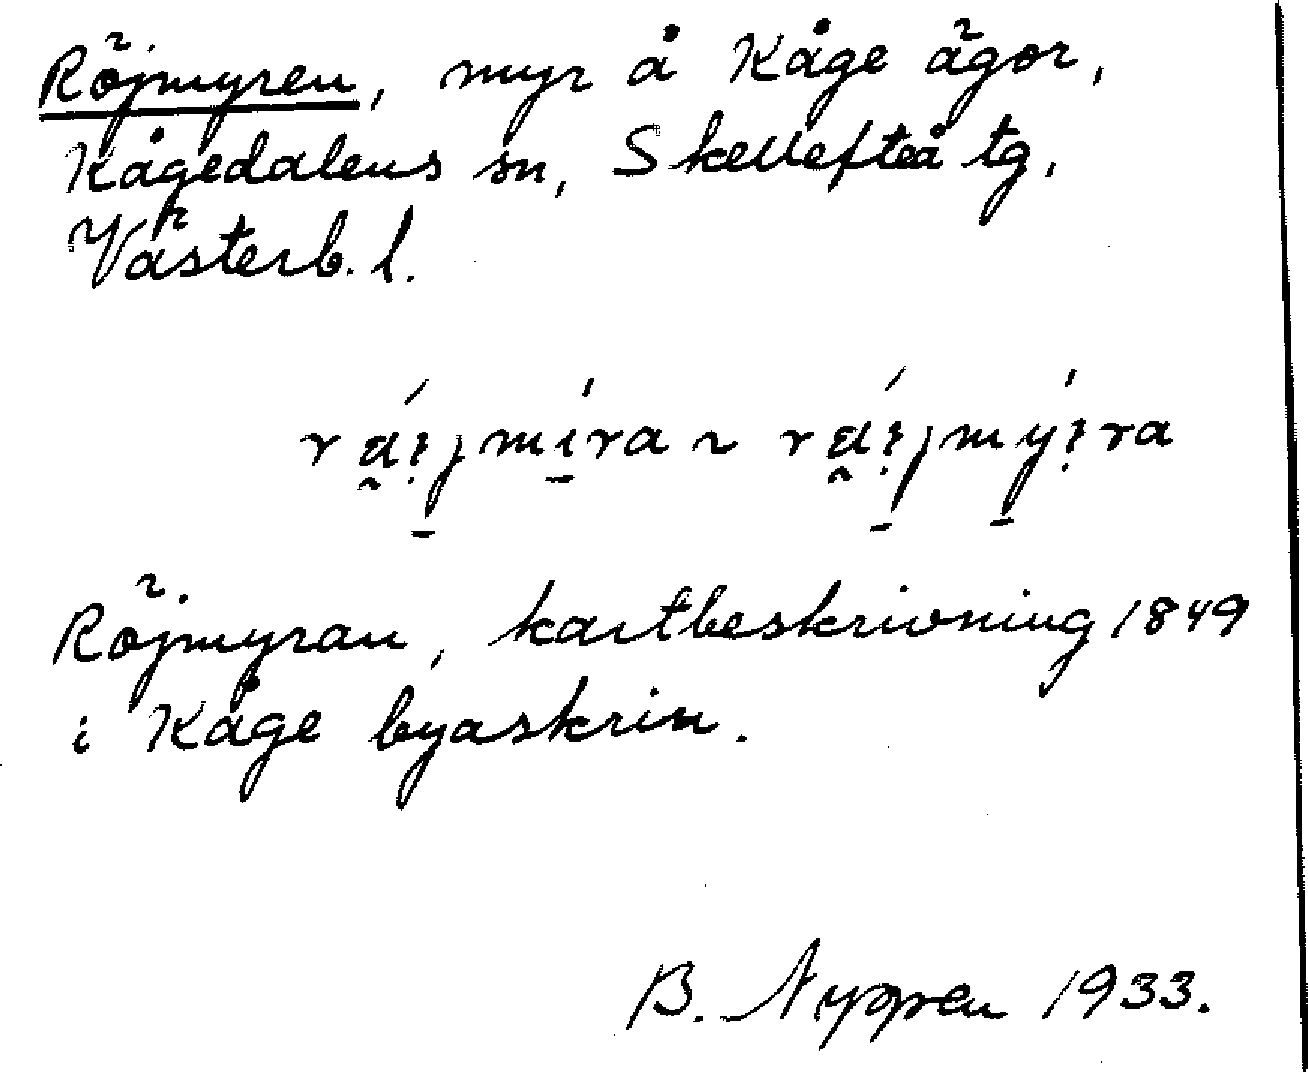 Röjmyren, myr å Kåge ägor,
Kågedalens sn, Skellefteå tg,
Västerb. l.
Röjmyran, kartbeskrivning 1849
i Kåge byaskrin.
B. 1933.